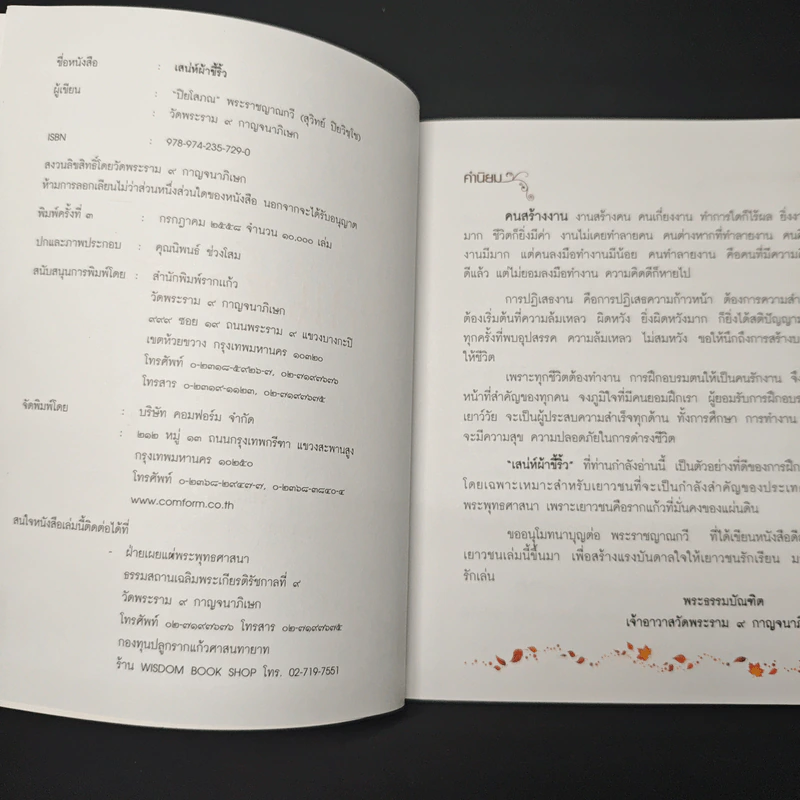 ชื่อหนังสือ : เสน่ห์ผ้าขี้ริ้ว
ผู้เขียน : "ปิยโสภณ" พระราชญาณกวี (สุวิทย์ ปิยวิชฺโช)
: วัดพระราม ๙ กาญจนาภิเษก
ISBN : 978-974-235-729-0
สงวนลิขสิทธิ์โดยวัดพระราม ๙ กาญจนาภิเษก
ห้ามการลอกเลียนไม่ว่าส่วนหนึ่งส่วนใดของหนังสือ นอกจากจะได้รับอนุญาต
พิมพ์ครั้งที่ ๓ : กรกฎาคม ๒๕๕๘ จำนวน ๑๐,๐๐๐ เล่ม
ปกและภาพประกอบ : คุณนิพนธ์ ช่วงโสม
สนับสนุนการพิมพ์โดย : สำนักพิมพ์รากแก้ว
วัดพระราม ๙ กาญจนาภิเษก
๙๙๙ ซอย ๑๙ ถนนพระราม ๙ แขวงบางกะปิ
เขตห้วยขวาง กรุงเทพมหานคร ๑๐๓๒๐
โทรศัพท์ ๐-๒๓๑๘-๕๙๒๖-๗, ๐๒-๗๑๙๗๖๗๖
โทรสาร ๐-๒๓๑๙-๑๑๒๓, ๐๒-๗๑๙๗๖๗๕
จัดพิมพ์โดย : บริษัท คอมฟอร์ม จำกัด
: ๒๑๒ หมู่ ๑๓ ถนนกรุงเทพกรีฑา แขวงสะพานสูง
กรุงเทพมหานคร ๑๐๒๕๐
โทรศัพท์ ๐-๒๓๖๘-๒๙๔๓-๗, ๐-๒๓๖๘-๓๘๔๐-๔
www.comform.co.th
สนใจหนังสือเล่มนี้ติดต่อได้ที่
- ฝ่ายเผยแผ่พระพุทธศาสนา
ธรรมสถานเฉลิมพระเกียรติรัชกาลที่ ๙
วัดพระราม ๙ กาญจนาภิเษก
โทรศัพท์ ๐๒-๗๑๙๗๖๗๖ โทรสาร ๐๒-๗๑๙๗๖๗๕
กองทุนปลูกรากแก้วศาสนทายาท
ร้าน WISDOM BOOK SHOP โทร. 02-719-7551
คำนิยม
คนสร้างงาน งานสร้างคน คนเกี่ยงงาน ทำการใดก็ไร้ผล ยิ่ง
มาก ชีวิตก็ยิ่งมีค่า งานไม่เคยทำลายคน คนต่างหากที่ทำลายงาน
งานมีมาก แต่คนลงมือทำงานมีน้อย คนทำลายงาน คือคนที่มีความ
ดีแล้ว แต่ไม่ยอมลงมือทำงาน ความคิดดีก็หายไป
การปฏิเสธงาน คือการปฏิเสธความก้าวหน้า ต้องการความ
ต้องเริ่มต้นที่ความล้มเหลว ผิดหวัง ยิ่งผิดหวังมาก ก็ยิ่งได้สติปัญญา
ทุกครั้งที่พบอุปสรรค ความล้มเหลว ไม่สมหวัง ขอให้นึกถึงการสร้าง
ให้ชีวิต
เพราะทุกชีวิตต้องทำงาน การฝึกอบรมตนให้เป็นคนรักงาน
หน้าที่สำคัญของทุกคน จงภูมิใจที่มีคนยอมฝึกเรา ผู้ยอมรับการฝึก
เยาว์วัย จะเป็นผู้ประสบความสำเร็จทุกด้าน ทั้งการศึกษา การทำงาน
จะมีความสุข ความปลอดภัยในการดำรงชีวิต
"เสน่ห์ผ้าขี้ริ้ว" ที่ท่านกำลังอ่านนี้ เป็นตัวอย่างที่ดีของการฝึก
โดยเฉพาะเหมาะสำหรับเยาวชนที่จะเป็นกำลังสำคัญของประเทศ
พระพุทธศาสนา เพราะเยาวชนคือรากแก้วที่มั่นคงของแผ่นดิน
ขออนุโมทนาบุญต่อ พระราชญาณกวี ที่ได้เขียนหนังสือดี
เยาวชนเล่มนี้ขึ้นมา เพื่อสร้างแรงบันดาลใจให้เยาวชนรักเรียน
รักเล่น
พระธรรมบัณฑิต
เจ้าอาวาสวัดพระราม ๙ กาญจนา